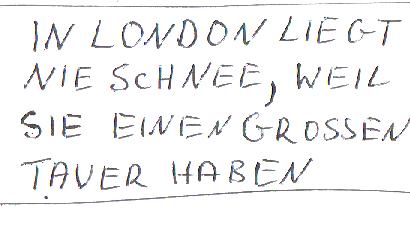 IN LONDON LIEGT
NIE SCHNEE, WEIL
SIE EINEN GROSSEN
TAUER HABEN